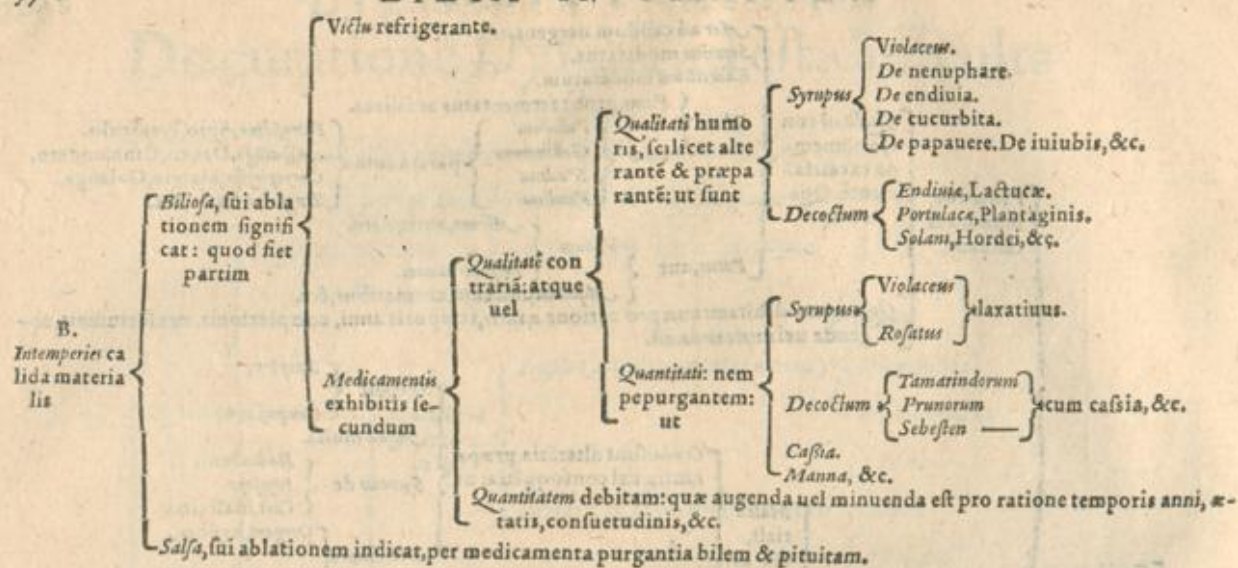 B.
Intemperies ca
lida materia
lis
Biliosa, sui abla
tionem signifi
cat: quod fiet
partim
Victu refrigerante.
Medicamentis
exhibitis se-
cundum
Qualitatē con
trariā: atque
uel
Qualitati humo
ris, scilicet alte
rantē & præpa
rantē: ut sunt
Syrupus
Violaceus.
De nenuphare.
De endiuia.
De cucurbita.
De papauere. De iuiubis, &c.
Decoctum
Endiuiæ, Lactucæ.
Portulacæ, Plantaginis.
Solani, Hordei, &c.
Quantitati: nem
pe purgantem:
ut
Syrupus
Violaceus
Rosatus
laxatiuus.
Decoctum
Tamarindorum
Prunorum
Sebesten
cum cassia, &c.
Cassia.
Manna, &c.
Quantitatem debitam: quæ augenda uel minuenda est pro ratione temporis anni, æ-
tatis, consuetudinis, &c.
Salsa, sui ablationem indicat, per medicamenta purgantia bilem & pituitam.